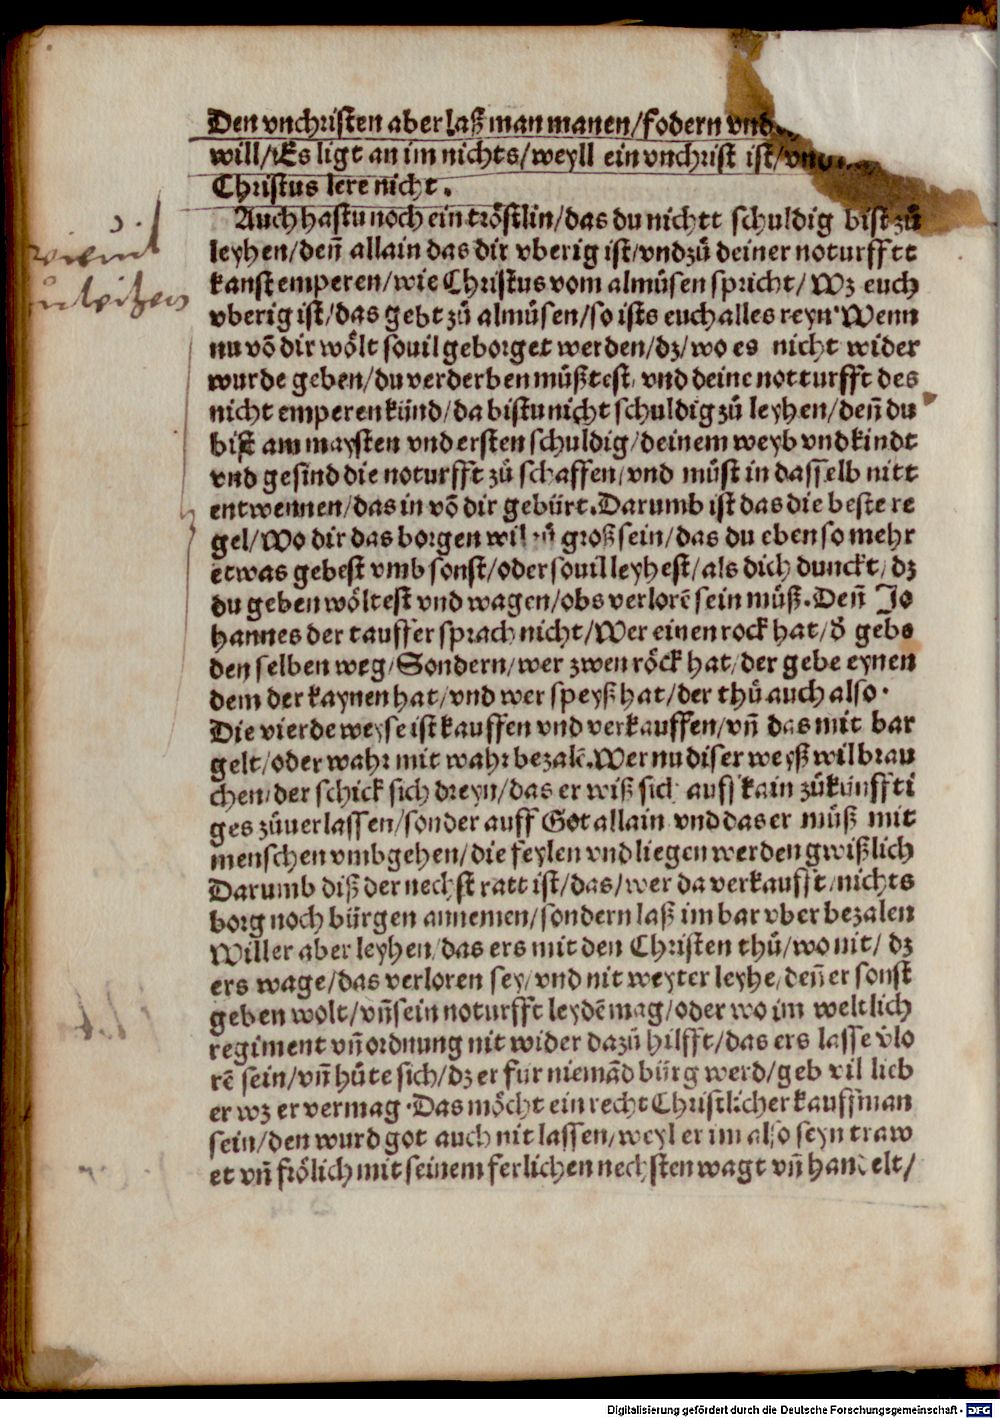 Den vnchristen aber laß man manen/fodern vnd
will/Es ligt an im nichts/weyll ein vnchrist ist/
Christus lere nicht.
Auch hastu noch ein tröstlin/das du nichtt schuldig bist zů
leyhen/deñ allain das dir vberig ist/vnd zů deiner noturfftt
kanst emperen/wie Christus vom almůsen spricht/Wz euch
vberig ist/das gebt zů almůsen/so ists euch alles reyn·Wenn
nu võ dir wölt souil geborget werden/dz/wo es nicht wider
wurde geben/du verderben můßtest/vnd deine notturfft des
nicht emperen künd/da bistu nicht schuldig zů leyhen/deñ du
bist am maysten vnd ersten schuldig/deinem weyb vnd kindt
vnd gesind die noturfft zů schaffen/vnd můst in dasselb nitt
entwennen/das in võ dir gebürt.Darumb ist das die beste re
gel/Wo dir das borgen wil zů groß sein/das du eben so mehr
etwas gebest vmb sonst/oder souil leyhest/als dich dunckt/dz
du geben wöltest vnd wagen/obs verlorẽ sein můß.Deñ Jo
hannes der tauffer sprach nicht/Wer einen rock hat/ď gebe
den selben weg/Sondern/wer zwen röck hat/der gebe eynen
dem der kaynen hat/vnd wer speyß hat/der thů auch also·
Die vierde weyse ist kauffen vnd verkauffen/vñ das mit bar
gelt/oder wahr mit wahr bezalẽ.Wer nu diser weyß wil brau
chen/der schick sich dreyn/das er wiß sich auff kain zůkünffti
ges zůuerlassen/sonder auff Got allain vnd das er můß mit
menschen vmbgehen/die feylen vnd liegen werden gwißlich
Darumb diß der nechst ratt ist/das/wer da verkaufft/nichts
borg noch bürgen annemen/sondern laß im bar vber bezalen
Will er aber leyhen/das ers mit den Christen thů/wo nit/dz
ers wage/das verloren sey/vnd nit weyter leyhe/deñ er sonst
geben wolt/vñ sein noturfft leydẽ mag/oder wo im weltlich
regiment vñ ordnung nit wider dazů hilfft/das ers lasse v̓lo
rẽ sein/vñ hůte sich/dz er für niemãd bürg werd/geb vil lieb
er wz er vermag·Das möcht ein recht Christlicher kauffman
sein/den wurd got auch nit lassen/weyl er im also seyn traw
et vñ frölich mit seinem ferlichen nechsten wagt vñ handelt/
Digitalisierung gefördert durch die Deutsche Forschungsgemeinschaft - DFG